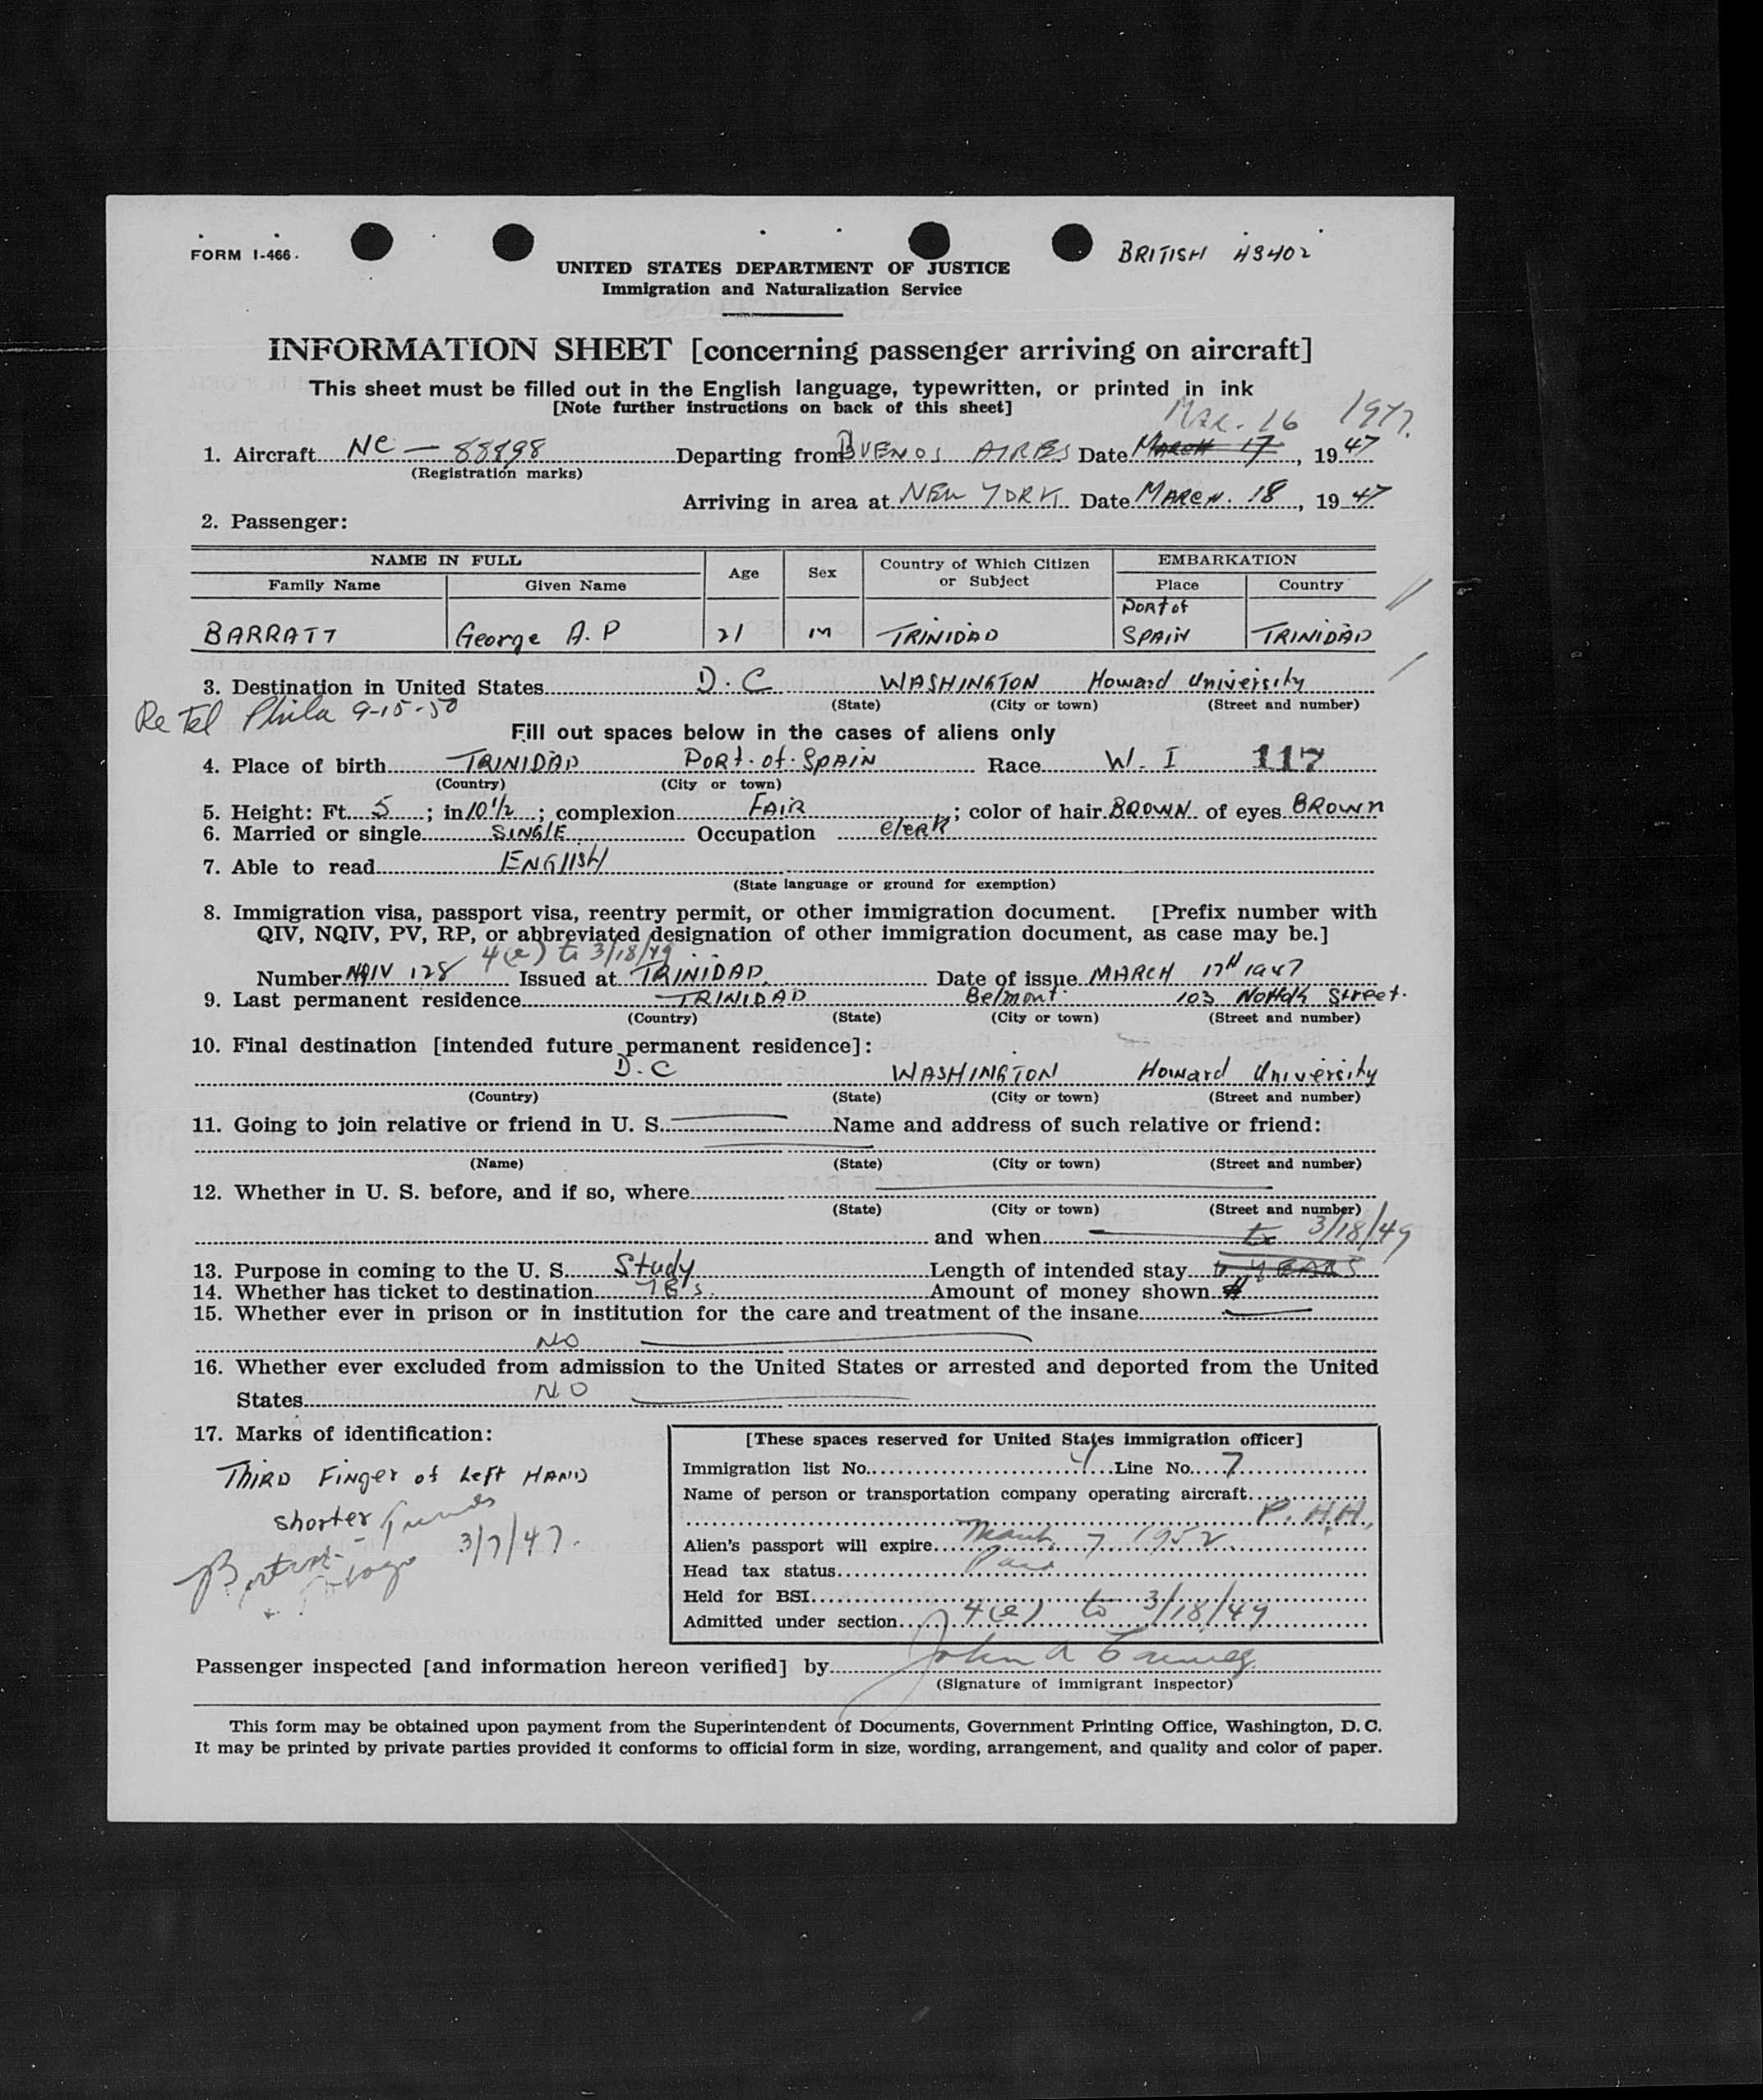 FORM I-466.
BRITISH
UNITED STATES DEPARTMENT OF JUSTICE
Immigration and Naturalization Service
INFORMATION SHEET [concerning passenger arriving on aircraft]
This sheet must be filled out in the English language, typewritten, or printed in ink
[Note further instructions on back of this sheet]
MAR. 16 1947.
1. Aircraft NC - 88898 Departing from BUENOS AIRES Date MARCH 17, 1947
(Registration marks)
Arriving in area at NEW YORK Date MARCH. 18, 1947
2. Passenger:
NAME IN FULL Age Sex Country of Which Citizen or Subject EMBARKATION
Family Name Given Name Place Country
BARRATT George A. P 21 M TRINIDAD PORT of SPAIN TRINIDAD
3. Destination in United States D. C WASHINGTON Howard University
(State) (City or town) (Street and number)
Re Tel Phila 9-15-50
Fill out spaces below in the cases of aliens only
4. Place of birth TRINIDAD PORT. of. SPAIN Race W. I 117
(Country) (City or town)
5. Height: Ft. 5; in 10 1/2; complexion FAIR; color of hair BROWN of eyes BROWN
6. Married or single SINGLE Occupation Clerk
7. Able to read ENGLISH
(State language or ground for exemption)
8. Immigration visa, passport visa, reentry permit, or other immigration document. [Prefix number with
QIV, NQIV, PV, RP, or abbreviated designation of other immigration document, as case may be.]
4(e) to 3/18/49
Number NQIV 128 Issued at TRINIDAD. Date of issue MARCH 17th 1947
9. Last permanent residence TRINIDAD Belmont 103 Norfolk Street.
(Country) (State) (City or town) (Street and number)
10. Final destination [intended future permanent residence]:
D. C WASHINGTON Howard University
(Country) (State) (City or town) (Street and number)
11. Going to join relative or friend in U. S. Name and address of such relative or friend:
(Name) (State) (City or town) (Street and number)
12. Whether in U. S. before, and if so, where
(State) (City or town) (Street and number)
and when to 3/18/49
13. Purpose in coming to the U. S. Study Length of intended stay YEARS
14. Whether has ticket to destination YES. Amount of money shown
15. Whether ever in prison or in institution for the care and treatment of the insane
NO
16. Whether ever excluded from admission to the United States or arrested and deported from the United
States NO
17. Marks of identification:
THIRD FINGER of Left HAND
shorter
3/7/47.
[These spaces reserved for United States immigration officer]
Immigration list No. 4 Line No. 7
Name of person or transportation company operating aircraft
Alien's passport will expire March 7 1952
Head tax status Paid
Held for BSI
Admitted under section 4(e) to 3/18/49
Passenger inspected [and information hereon verified] by John A
(Signature of immigrant inspector)
This form may be obtained upon payment from the Superintendent of Documents, Government Printing Office, Washington, D. C.
It may be printed by private parties provided it conforms to official form in size, wording, arrangement, and quality and color of paper.